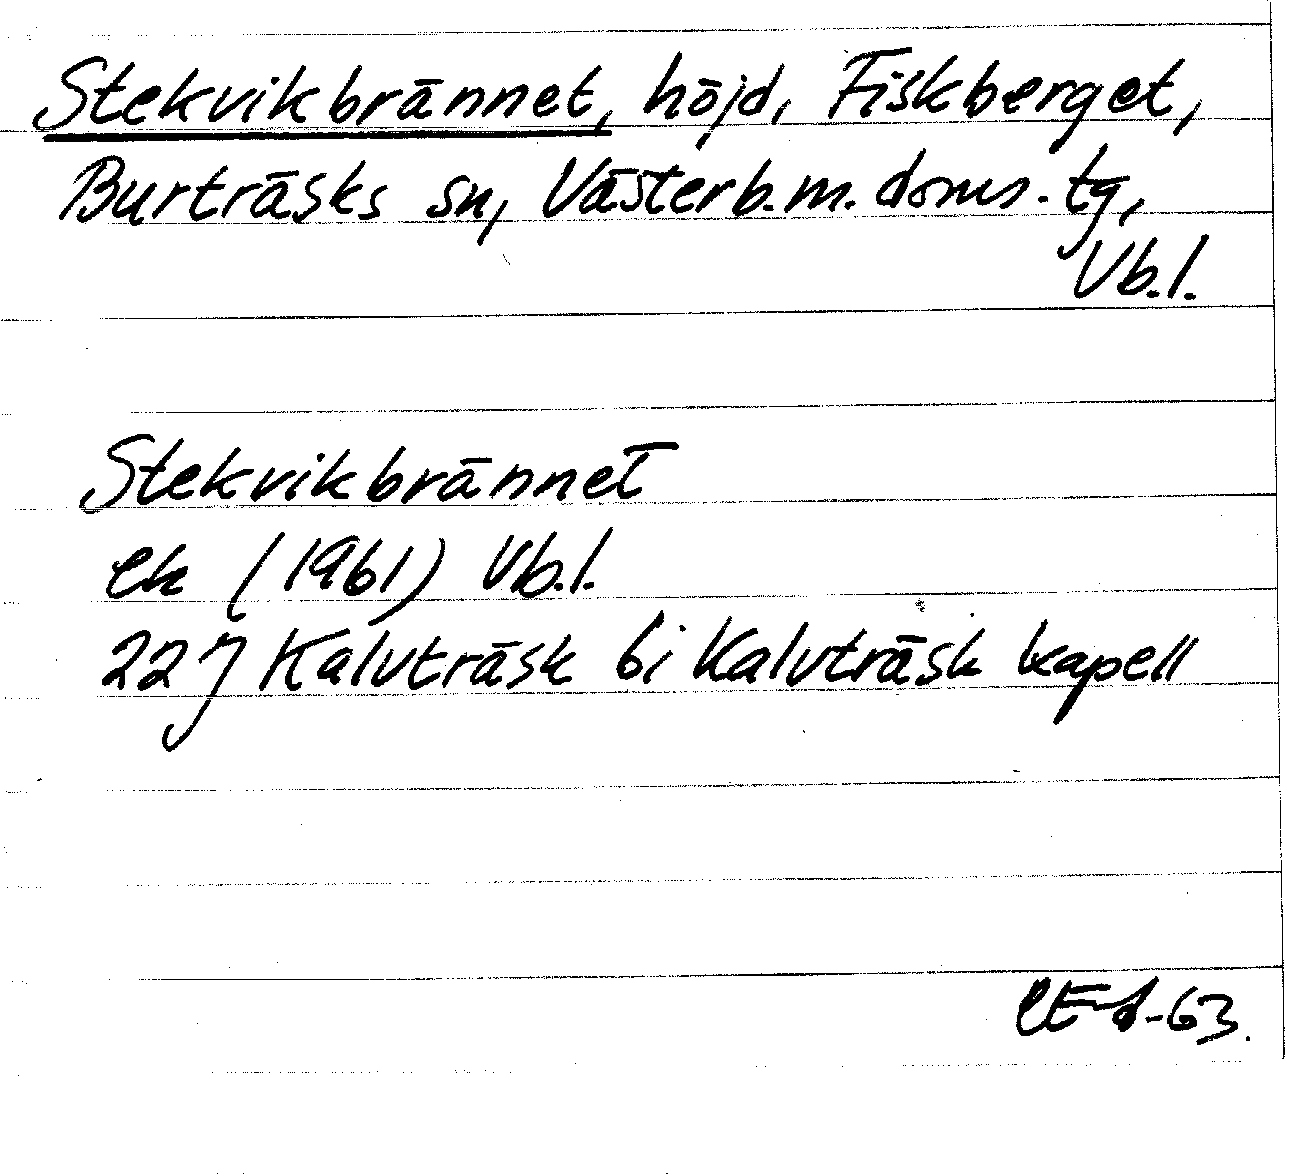 Stekvikbrännet, höjd, Fiskberget,
Burträsks sn, Västerb.m. doms. tg,
Vb.l.
Stekvikbrännet
ek (1961) Vb.l.
22 J Kalvträsk 6i Kalvträsk kapell
63.